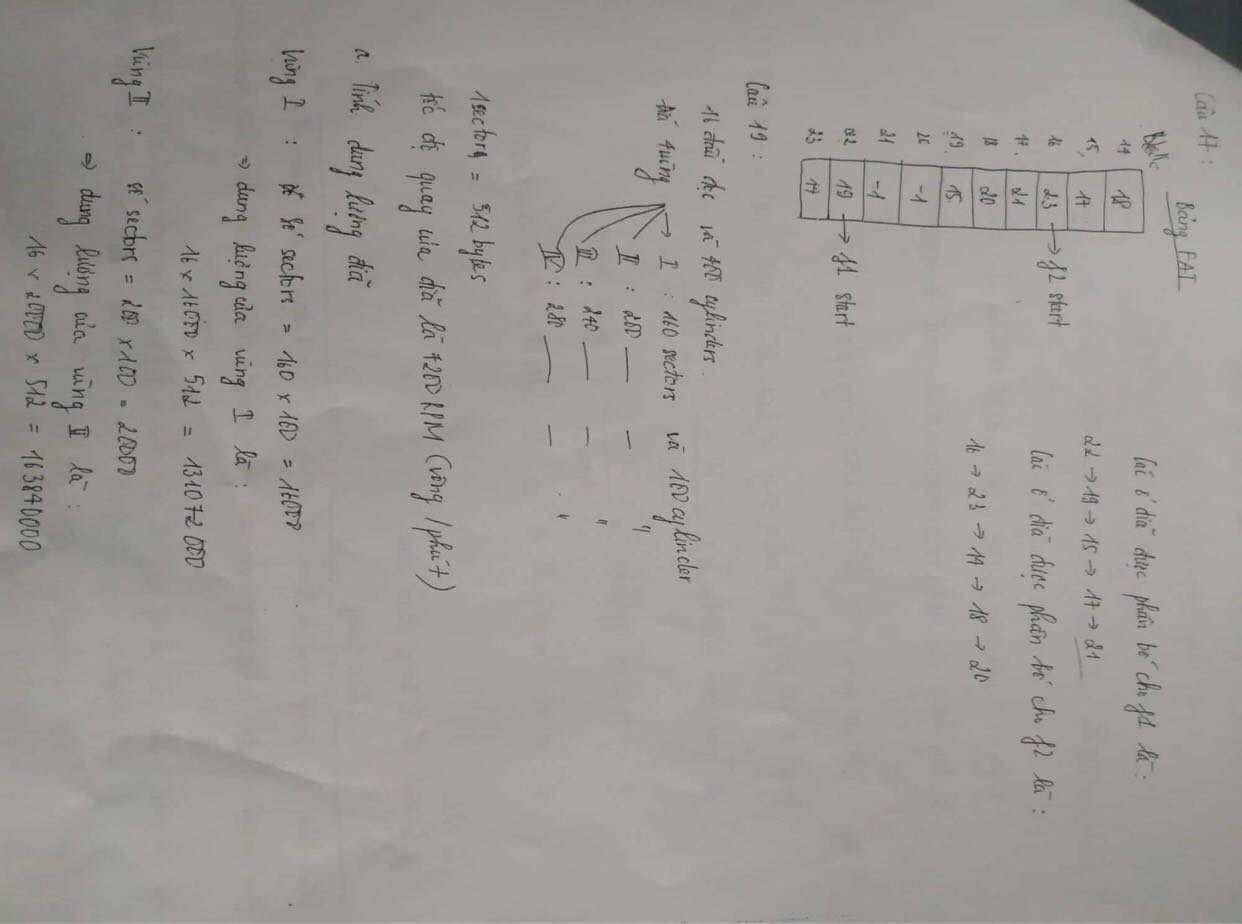 Câu 17:
Bảng FAT
Block
14 18
15 17
16 23 → f2 start
17 21
18 20
19 15
20 -1
21 -1
22 19 → f1 start
23 14
Các ổ đĩa được phân bố cho f1 là:
22 → 19 → 15 → 17 → 21
Các ổ đĩa được phân bố cho f2 là:
16 → 23 → 14 → 18 → 20
Câu 19:
16 đầu đọc và 400 cylinders.
4 vùng → I : 160 sectors và 100 cylinder
II : 200 — — "
III : 240 — — "
IV : 280 — — "
1 sectors = 512 bytes
tốc độ quay của đĩa là 7200 RPM (vòng / phút)
a. Tính dung lượng đĩa
Vùng I : số sectors = 160 x 100 = 16000
⇒ dung lượng của vùng I là:
16 x 16000 x 512 = 131072000
Vùng II : số sectors = 200 x 100 = 20000
⇒ dung lượng của vùng II là:
16 x 20000 x 512 = 163840000